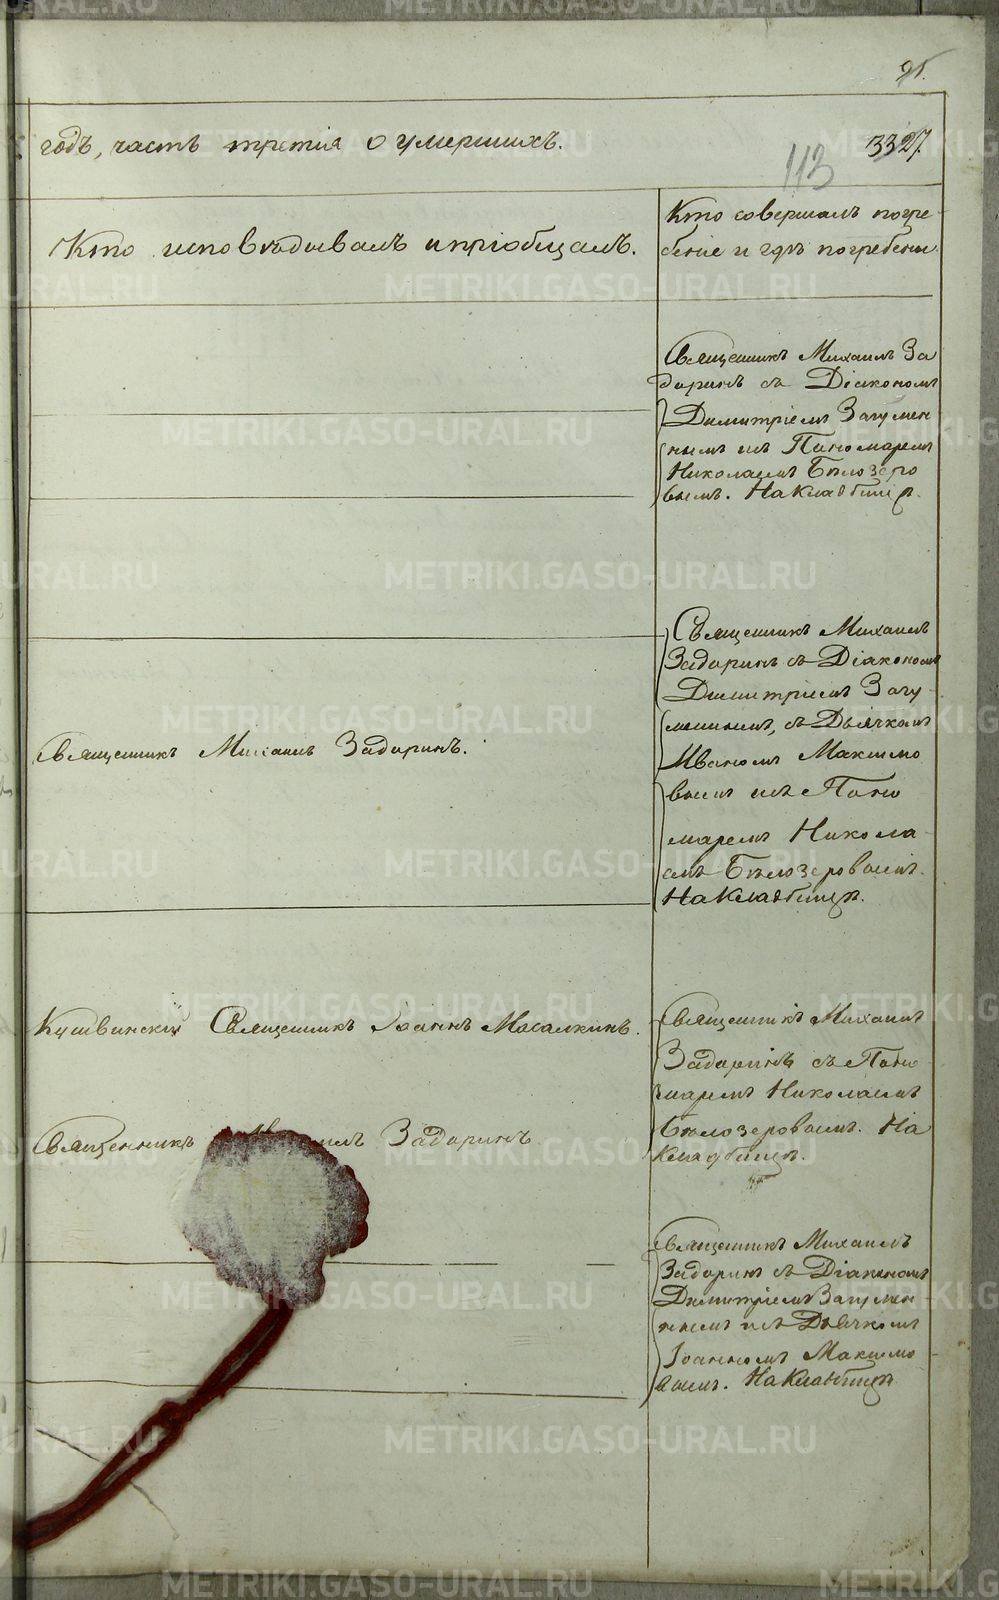 91.
годъ, часть третiя о умершихъ.
3327.
113
Кто исповѣдывалъ и прiобщалъ.
Кто совершалъ погре-
бенiе и гдѣ погребены
Священникъ Михаилъ За
даринъ съ Дiакономъ
Димитрiемъ Загумен
нымъ и съ Пономаремъ
Николаемъ Бѣлозеро
вымъ. На Кладбищѣ.
Священникъ Михаилъ
Задаринъ съ Дiакономъ
Димитрiемъ Загу-
меннымъ, съ Дьячкомъ
Иваномъ Максимо
вымъ и съ Поно
маремъ Никола
емъ Бѣлозеровымъ.
На Кладбищѣ.
Священникъ Михаилъ Задаринъ.
Кушвинскiй Священникъ Iоаннъ Масалкинъ.
Священникъ Михаилъ
Задаринъ съ Поно
маремъ Николаемъ
Бѣлозеровымъ. На
кладбищѣ.
Священникъ Михаилъ Задаринъ
Священникъ Михаилъ
Задаринъ съ Дiакономъ
Димитрiемъ Загумен-
нымъ и съ Дьячкомъ
Iоанномъ Максимо
вымъ. На Кладбищѣ
METRIKI.GASO-URAL.RU